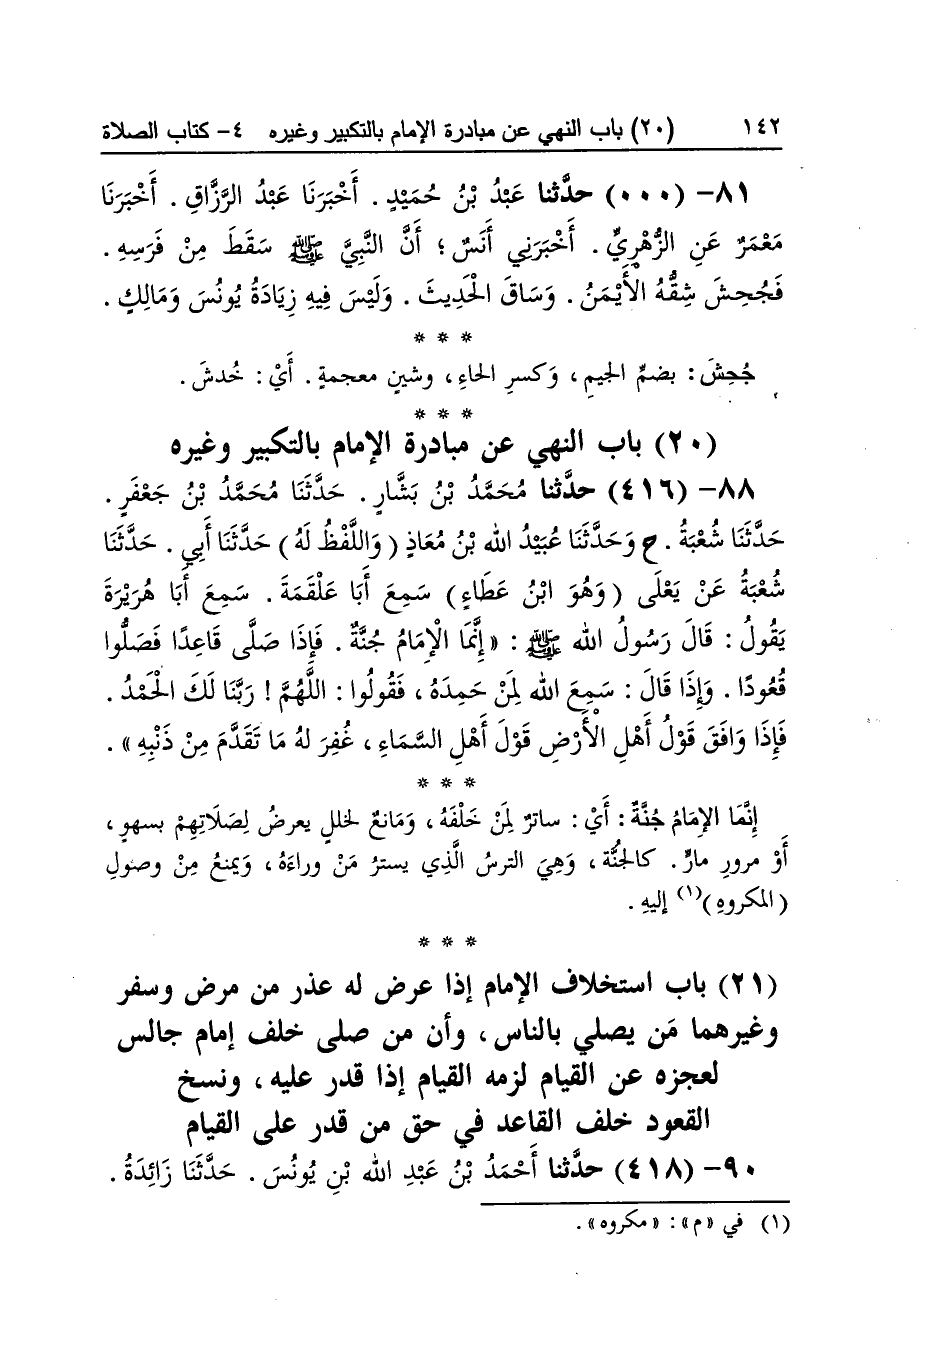 ١٤٢ (٢٠) باب النهي عن مبادرة الإمام بالتكبير وغيره ٤- كتاب الصلاة
٨١- (٠٠٠) حدَّثنا عَبْدُ بْنُ حُمَيْدٍ . أَخْبَرَنَا عَبْدُ الرَّزَّاقِ . أَخْبَرَنَا
مَعْمَرٌ عَنِ الزُّهْرِيِّ . أَخْبَرَنِي أَنَسٌ ؛ أَنَّ النَّبِيَّ ﷺ سَقَطَ مِنْ فَرَسِهِ .
فَجُحِشَ شِقُّهُ الأَيْمَنُ . وَسَاقَ الْحَدِيثَ . وَلَيْسَ فِيهِ زِيَادَةُ يُونُسَ وَمَالِكٍ .
* * *
جُحِشَ : بضمِّ الجيمِ ، وَكسرِ الحاءِ ، وشينٍ معجمةٍ . أَيْ : خُدشَ .
* * *
(٢٠) باب النهي عن مبادرة الإمام بالتكبير وغيره
٨٨- (٤١٦) حدَّثنا مُحَمَّدُ بْنُ بَشَّارٍ . حَدَّثَنَا مُحَمَّدُ بْنُ جَعْفَرٍ .
حَدَّثَنَا شُعْبَةُ . ح وَحَدَّثَنَا عُبَيْدُ الله بْنُ مُعَاذٍ ( وَاللَّفْظُ لَهُ ) حَدَّثَنَا أَبِي . حَدَّثَنَا
شُعْبَةُ عَنْ يَعْلَى ( وَهُوَ ابْنُ عَطَاءٍ ) سَمِعَ أَبَا عَلْقَمَةَ . سَمِعَ أَبَا هُرَيْرَةَ
يَقُولُ : قَالَ رَسُولُ الله ﷺ : « إِنَّمَا الْإِمَامُ جُنَّةٌ . فَإِذَا صَلَّى قَاعِدًا فَصَلُّوا
قُعُودًا . وَإِذَا قَالَ : سَمِعَ الله لِمَنْ حَمِدَهُ ، فَقُولُوا : اللَّهُمَّ ! رَبَّنَا لَكَ الْحَمْدُ .
فَإِذَا وَافَقَ قَوْلُ أَهْلِ الْأَرْضِ قَوْلَ أَهْلِ السَّمَاءِ ، غُفِرَ لَهُ مَا تَقَدَّمَ مِنْ ذَنْبِهِ » .
* * *
إِنَّمَا الإِمَامُ جُنَّةٌ : أَيْ : ساترٌ لِمَنْ خَلْفَهُ ، وَمَانعٌ لخللٍ يعرضُ لِصَلَاتِهِمْ بسهوٍ ،
أَوْ مرورِ مارٍّ . كالجُنَّة ، وَهِيَ الترسُ الَّذِي يسترُ مَنْ وراءَهُ ، وَيمنعُ مِنْ وصولِ
( المكروهِ )(١) إليهِ .
* * *
(٢١) باب استخلاف الإمام إذا عرض له عذر من مرض وسفر
وغيرهما مَن يصلي بالناس ، وأن من صلى خلف إمام جالس
لعجزه عن القيام لزمه القيام إذا قدر عليه ، ونسخ
القعود خلف القاعد في حق من قدر على القيام
٩٠- (٤١٨) حدَّثنا أَحْمَدُ بْنُ عَبْدِ الله بْنِ يُونُسَ . حَدَّثَنَا زَائِدَةُ .
(١) في «م» : «مكروه» .